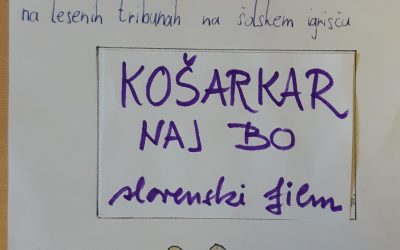 na lesenih tribunah na šolskem igrišču
KOŠARKAR
NAJ BO
slovenski film